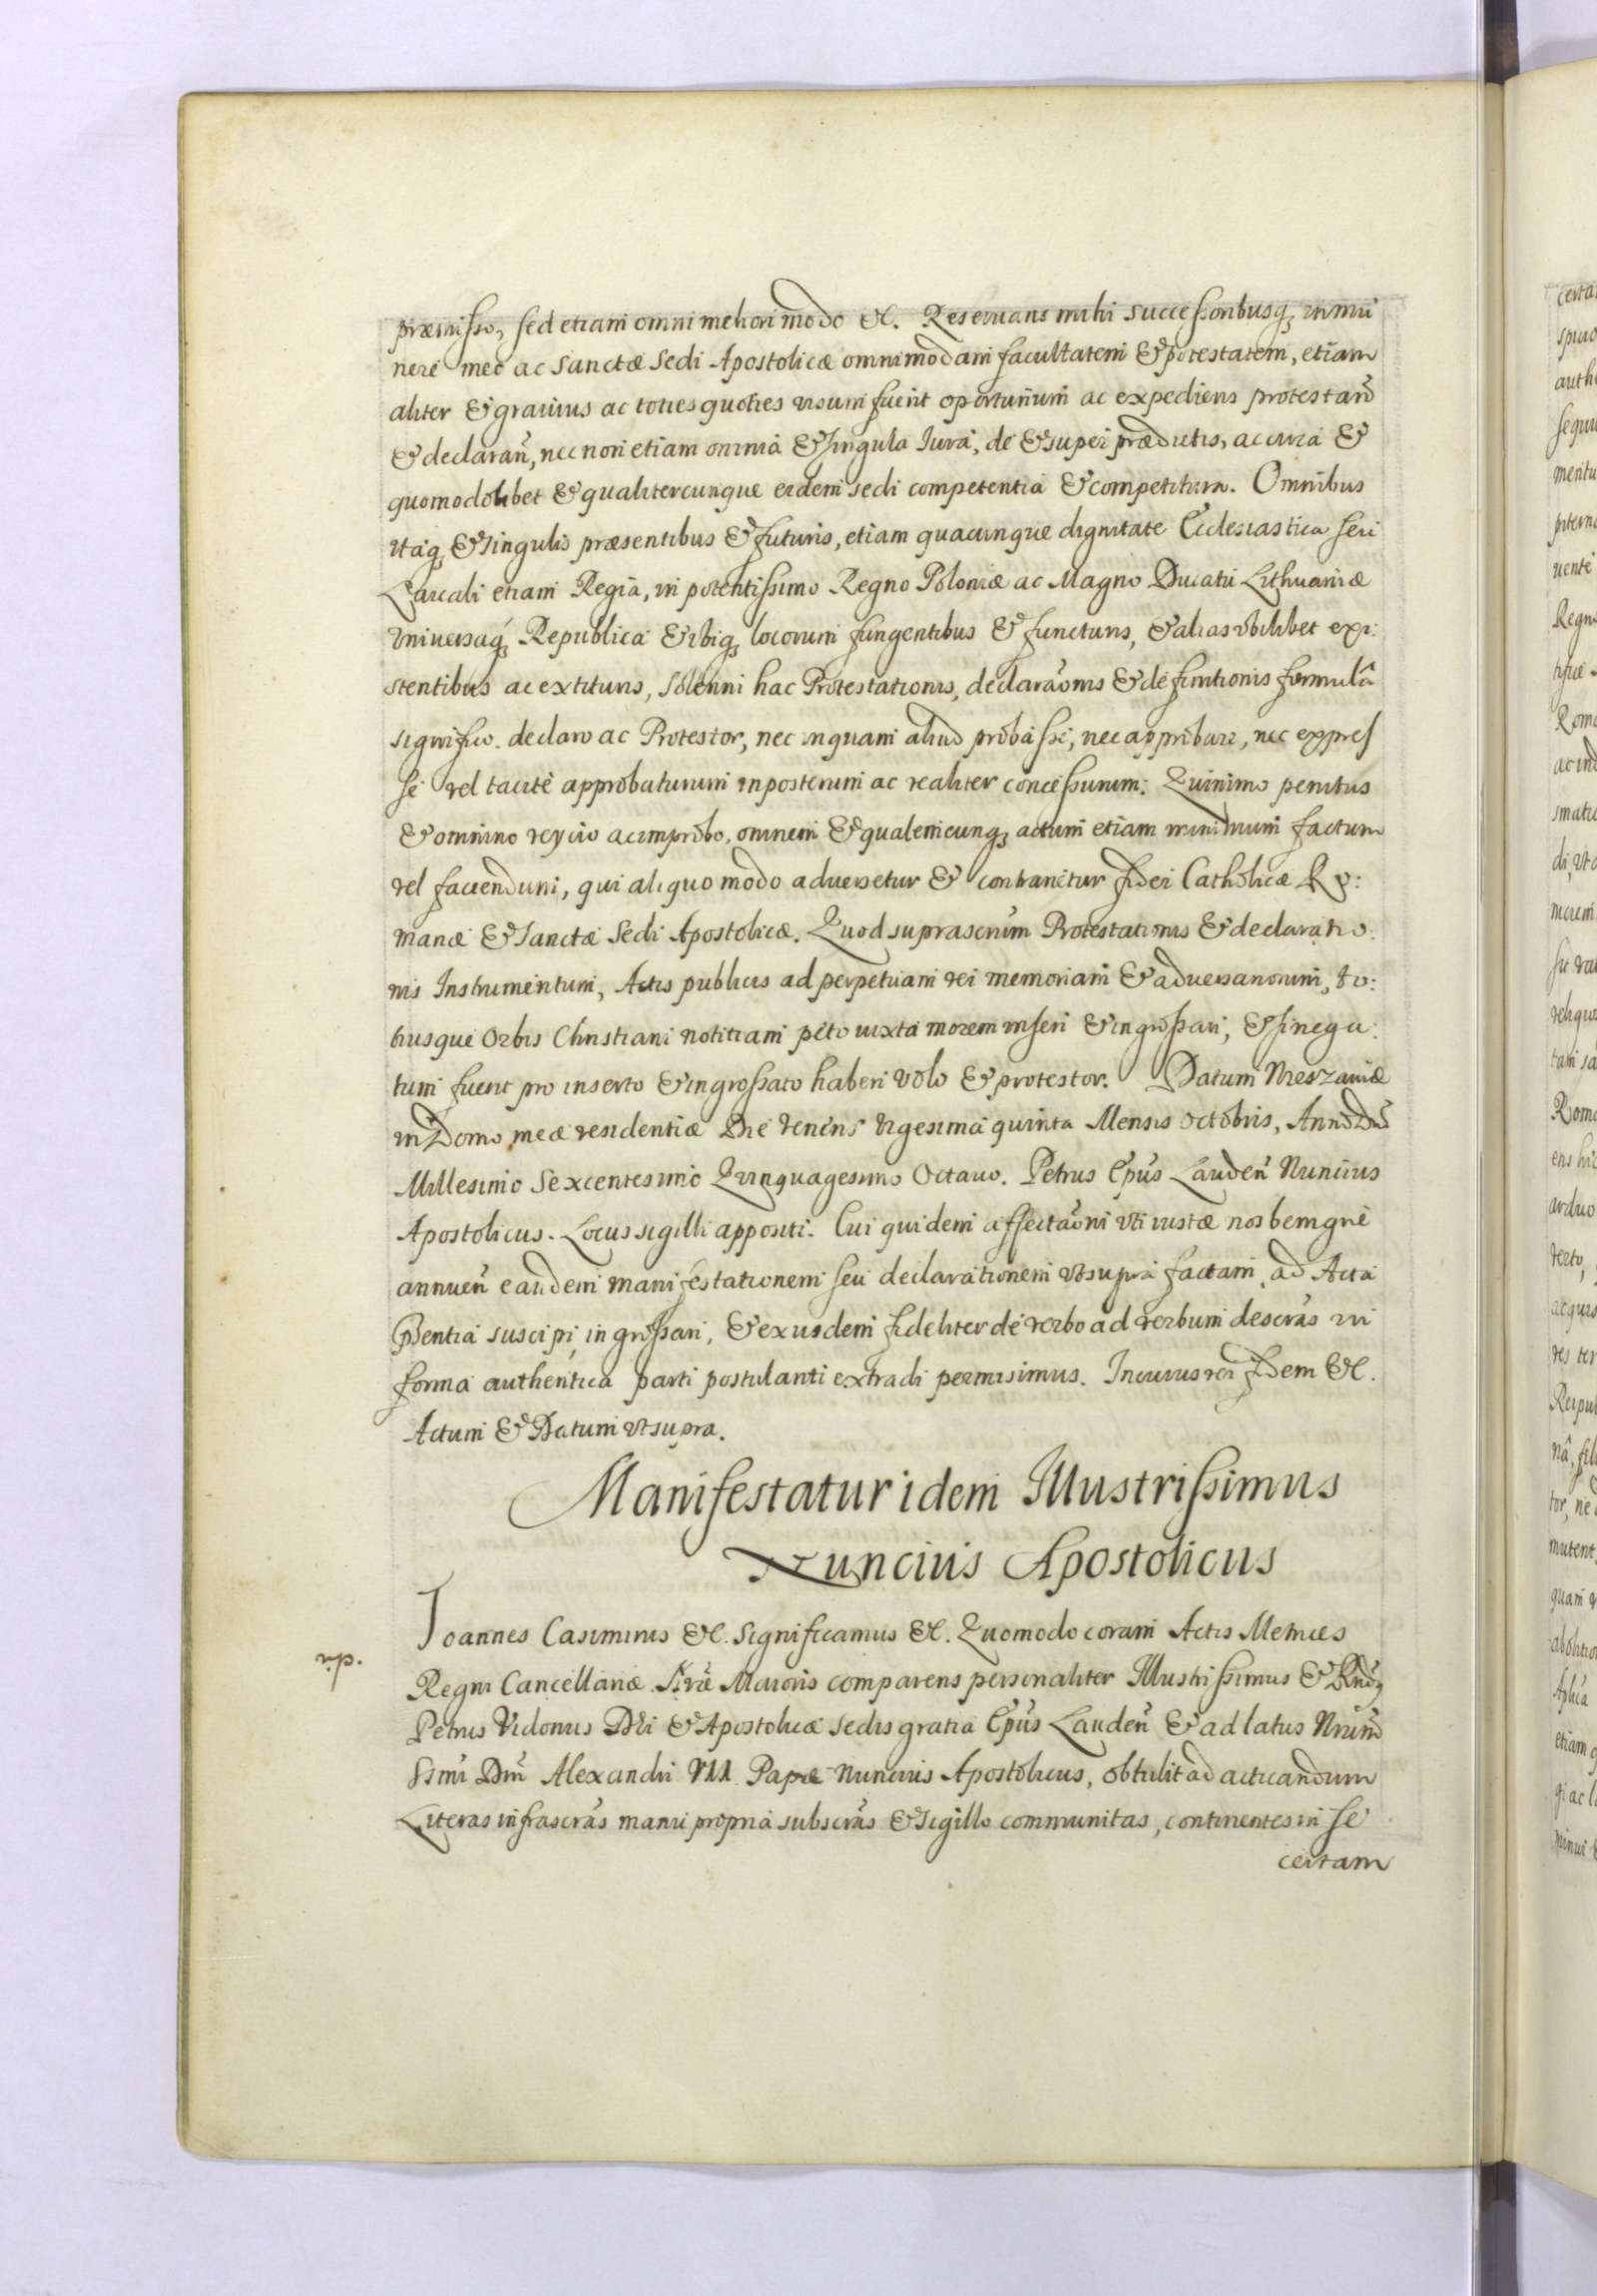 præmisso, sed etiam omni meliori modo &c. Reseruans mihi successoribusq; in mu
nere meo ac sanctæ sedi Apostolicæ omnimodam facultatem & potestatem, etiam
aliter & grauius ac toties quoties visum fuerit oportunum ac expediens protestañ
& declarañ, nec non etiam omnia & singula Iura, de & super prædictis, ac circa &
quomodolibet & qualitercunque eidem sedi competentia & competitura. Omnibus
itaq; & singulis præsentibus & futuris, etiam quacunque dignitate Ecclesiastica seu
Laicali etiam Regia, in potentissimo Regno Poloniæ ac Magno Ducatu Lithuaniæ
vniuersaq; Republica & vbiq; locorum fungentibus & functuris, & alias vbilibet exi:
stentibus ac extituris, solenni hac Protestationis, declaraõnis & definitionis formulâ
significo. declaro ac Protestor, nec inquam aliud probasse, nec approbare, nec expres
se vel tacitè approbaturum inposterum ac realiter concessurum: Quinimo penitus
& omnino reycio ac improbo, omnem & qualemcunq; actum etiam minimum factum
vel faciendum, qui aliquo modo aduersetur & contrarietur fidei Catholicæ Ro:
manæ & Sanctæ Sedi Apostolicæ. Quod suprascrium Protestationis & declaratio:
nis Instrumentum, Actis publicis ad perpetuam rei memoriam & aduersariorum, to:
tiusque Orbis Christiani notitiam peto iuxta morem inseri & ingrossari, & si nega:
tum fuerit pro inserto & ingrossato haberi volo & protestor. Datum Miedzariæ
in Domo meæ residentiæ Die veneris vigesima quinta Mensis Octobris, Anno Dni
Millesimo Sexcentesimo Quinquagesimo Octauo. Petrus Epũs Laudeñ Nuncius
Apostolicus. Locus sigilli appositi. Cui quidem affectaõni vti iustæ nos benignè
annueñ eandem manifestationem seu declarationem vt supra factam, ad Acta
pñentia suscipi, ingrossari, & exusdem fideliter de verbo ad verbum descrãs in
forma authentica parti postulanti extradi permisimus. In cuius rei fidem &c.
Actum & Datum vt supra.
Manifestatur idem Illustrissimus
Nuncius Apostolicus
Ioannes Casimirus &c. Significamus &c. Quomodo coram Actis Metrices
Regni Cancellariæ Nræ Maioris comparens personaliter Illustrissimus & Rndũs
Petrus Vidonus Dei & Apostolicæ sedis gratia Epũs Laudeñ & ad latus Nrum
Ssmi Dñi Alexandri VII Papæ Nuncius Apostolicus, obtulit ad acticandum
Literas infrascrãs manu propria subscrãs & sigillo communitas, continentes in se
certam